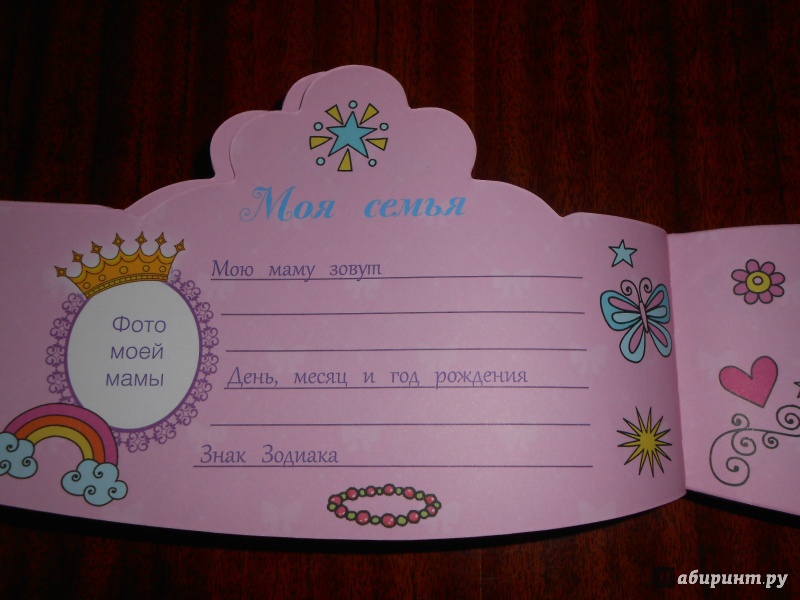 Моя семья
Мою маму зовут
Фото
моей
мамы
День, месяц и год рождения
Знак Зодиака
Лабиринт.ру